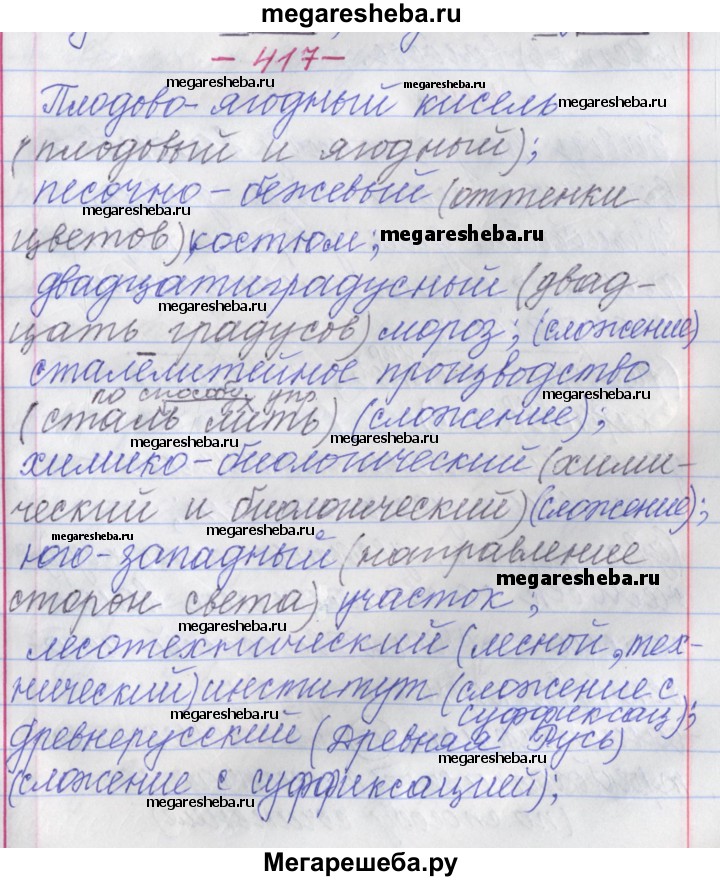 megaresheba.ru
- 417 -
megaresheba.ru
megaresheba.ru
Плодово-ягодный кисель
megaresheba.ru
(плодовый и ягодный);
песочно-бежевый (оттенки
megaresheba.ru
цветов) костюм;
megaresheba.ru
двадцатиградусный (двад-
megaresheba.ru
цать градусов) мороз; (сложение)
megaresheba.ru
сталелитейное производство
по способу упр
megaresheba.ru
(сталь лить) (сложение);
megaresheba.ru
химико-биологический (хими-
megaresheba.ru
ческий и биологический) (сложение);
megaresheba.ru
megaresheba.ru
юго-западный (направление
megaresheba.ru
сторон света) участок;
megaresheba.ru
лесотехнический (лесной, тех-
megaresheba.ru
нический) институт (сложение с
суффиксац);
megaresheba.ru
древнерусский (Древняя Русь)
megaresheba.ru
(сложение с суффиксацией);
megaresheba.ru
Мегарешеба.ру